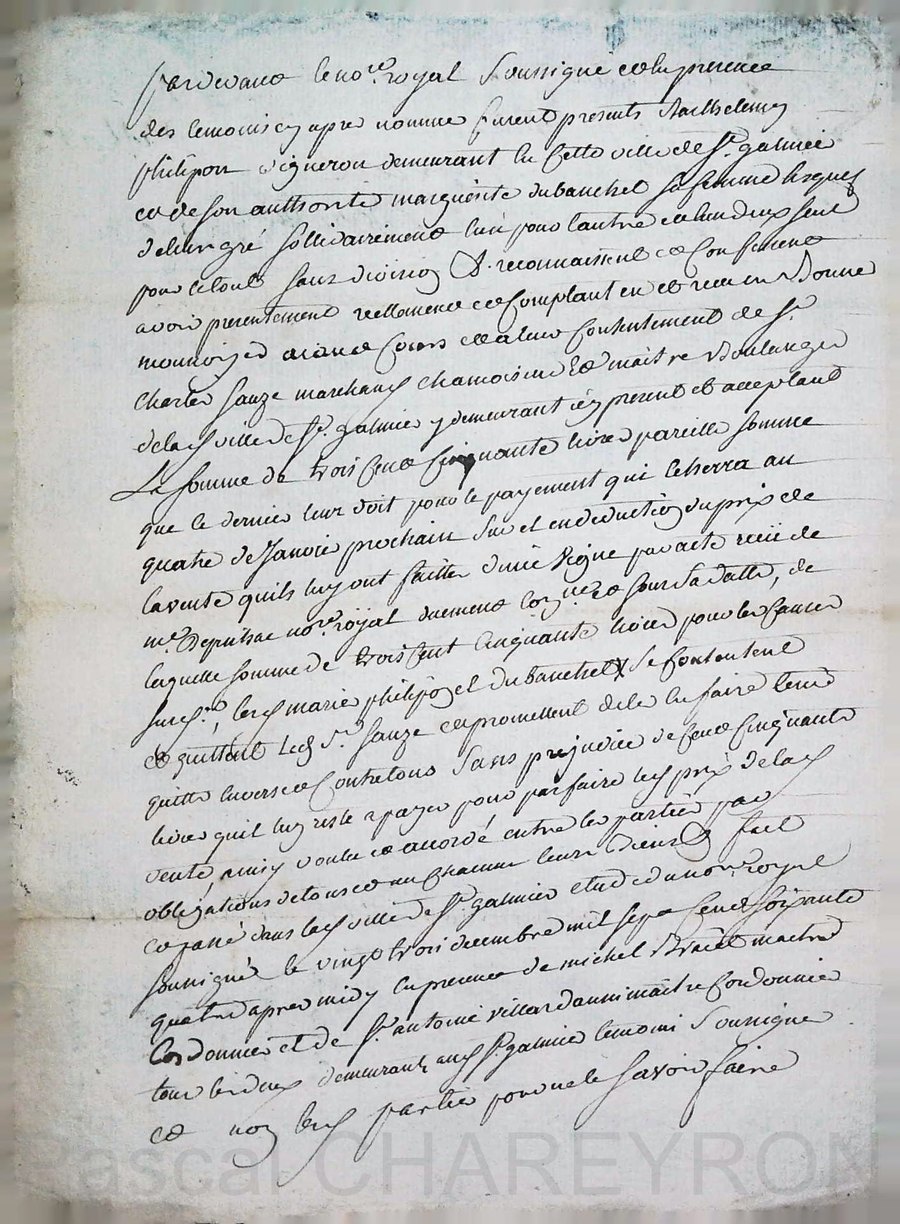 Pardevant le no.re royal Soussigné et en presence
des temoins cy apre nommé furent presents Barthelemy
philipon vigneron demeurant en cette ville de St. galmier
et de son authorité marguerite dubanchet sa femme lesquels
de leur gré sollidairement l'un pour l'autre et un deux seul
pour le tout sans division reconnaissent et Confessent
avoir presentement reellement et Comptant eu et receu en Bonne
monnoÿe aiant Cours et a leur Contentement de Sr.
Charles Sauze marchand chamoiseur et maître Boulanger
de lad ville de St. galmier y demeurant icy present et acceptant
La somme de trois Cent Cinquante livres pareille somme
que le dernier leur doit pour le payement qui écherra au
quatre de Janvier prochain sur et en deduction du prix de
la vente quils luy ont faitte d'une vigne par acte reçü de
me. no.re royal duement et sous sa datte, de
laquelle somme de trois cent cinquante livres pour les causes
susd., lesd mariés philipon et dubanchet se Contentent
et quittent led Sr. Sauze et promettent de le en faire tenir
quitte envers et Contre tous sans prejudice de Cent Cinquante
livres quil luy reste a payer pour parfaire led prix de lad
vente, ainsy voulu et accordé entre les parties par
obligations de tous et un chacun leurs biens fait
et passé dans lad ville de St. galmier etude du no.re royal
soussigné le vingt trois decembre mil sept Cent soixante
quatre apres midy en presence de michel maitre
Cordonnier et de Sr. antoine villard aussi maitre Cordonnier
tous les deux demeurant aud St. galmier temoins Soussignés
et non lesd parties pour ne le savoir faire
Pascal CHAREYRON